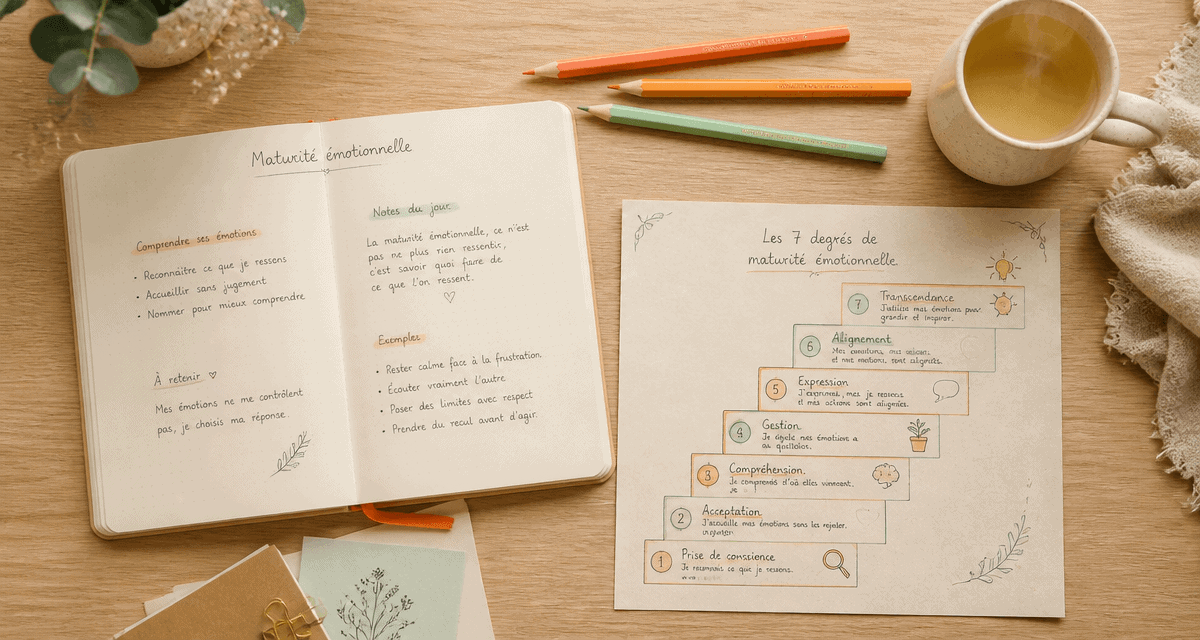 Maturité émotionnelle
Comprendre ses émotions
• Reconnaître ce que je ressens
• Accueillir sans jugement
• Nommer pour mieux comprendre
À retenir ♡
Mes émotions ne me contrôlent
pas, je choisis ma réponse.
Notes du jour
La maturité émotionnelle, ce n'est
pas ne plus rien ressentir,
c'est savoir quoi faire de
ce que l'on ressent.
♡
Exemples
• Rester calme face à la frustration
• Écouter vraiment l'autre
• Poser des limites avec respect
• Prendre du recul avant d'agir.
Les 7 degrés de
maturité émotionnelle
7 Transcendance
J'utilise mes émotions pour
grandir et inspirer.
6 Alignement
et mes sont alignés.
5 Expression
J'exprime je ressens
et mes actions sont alignées.
4 Gestion
Je mes émotions
3 Compréhension
Je comprends d'où elles viennent.
2 Acceptation
J'accueille mes émotions sans les rejeter.
1 Prise de conscience
Je reconnais ce que je ressens.